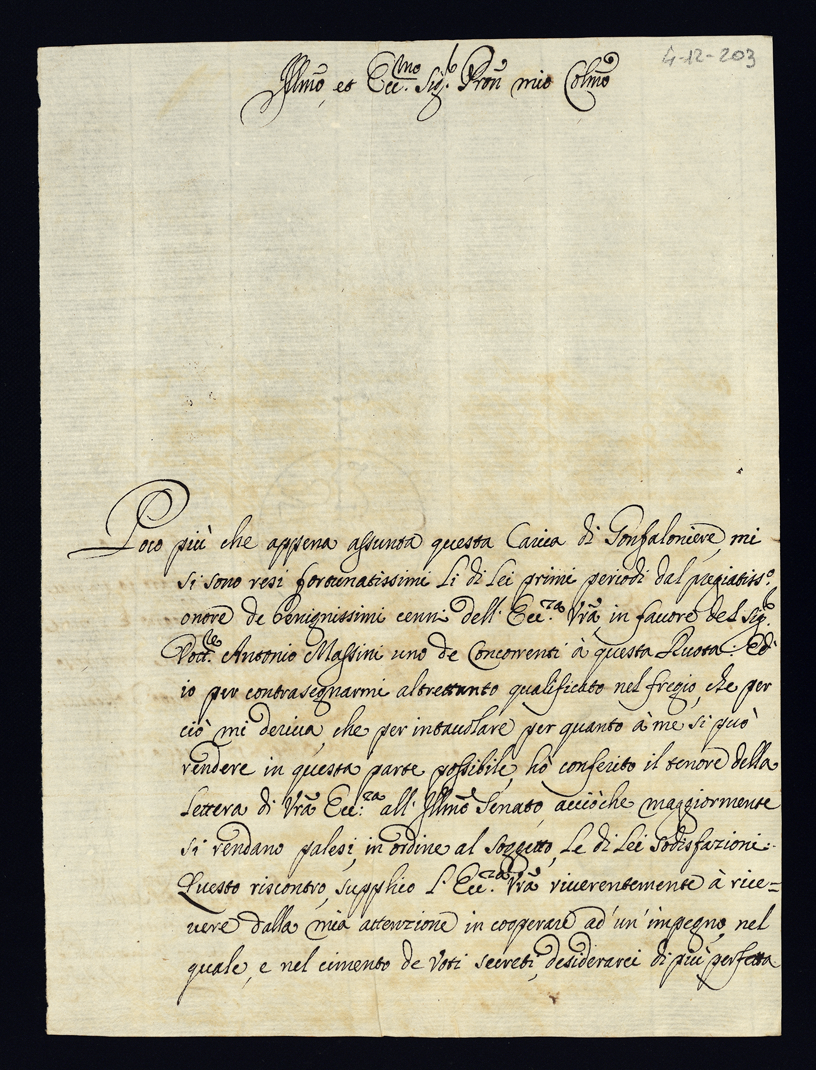 4-12-203
Jllmõ et Ecc.mo Sig.r Pron̄ mio Colmõ
Poco più che appena assunta questa Carica di Gonfaloniere, mi
si sono resi fortunatissimi li di Lei primi periodi dal pregiatiss.o
onore de benignissimi cenni dell' Ecc.za Vrã in favore del Sig.r
Dott.re Antonio Massini uno de Concorrenti à questa Ruota. Ed
io per contrasegnarmi altrettanto qualificato nel fregio, che per
ciò mi deriva, che per intavolare per quanto à me si può
rendere in questa parte possibile, hò conferito il tenore della
Lettera di Vrã Ecc.za all' Jllmõ Senato, acciòche maggiormente
si rendano palesi, in ordine al Soggetto, Le di Lei sodisfazioni:
Questo riscontro, supplico l' Ecc.za Vrã riverentemente à rice=
vere dalla mia attenzione in cooperare ad' un' impegno, nel
quale, e nel cimento de Voti secreti, desiderarei di più perfetta